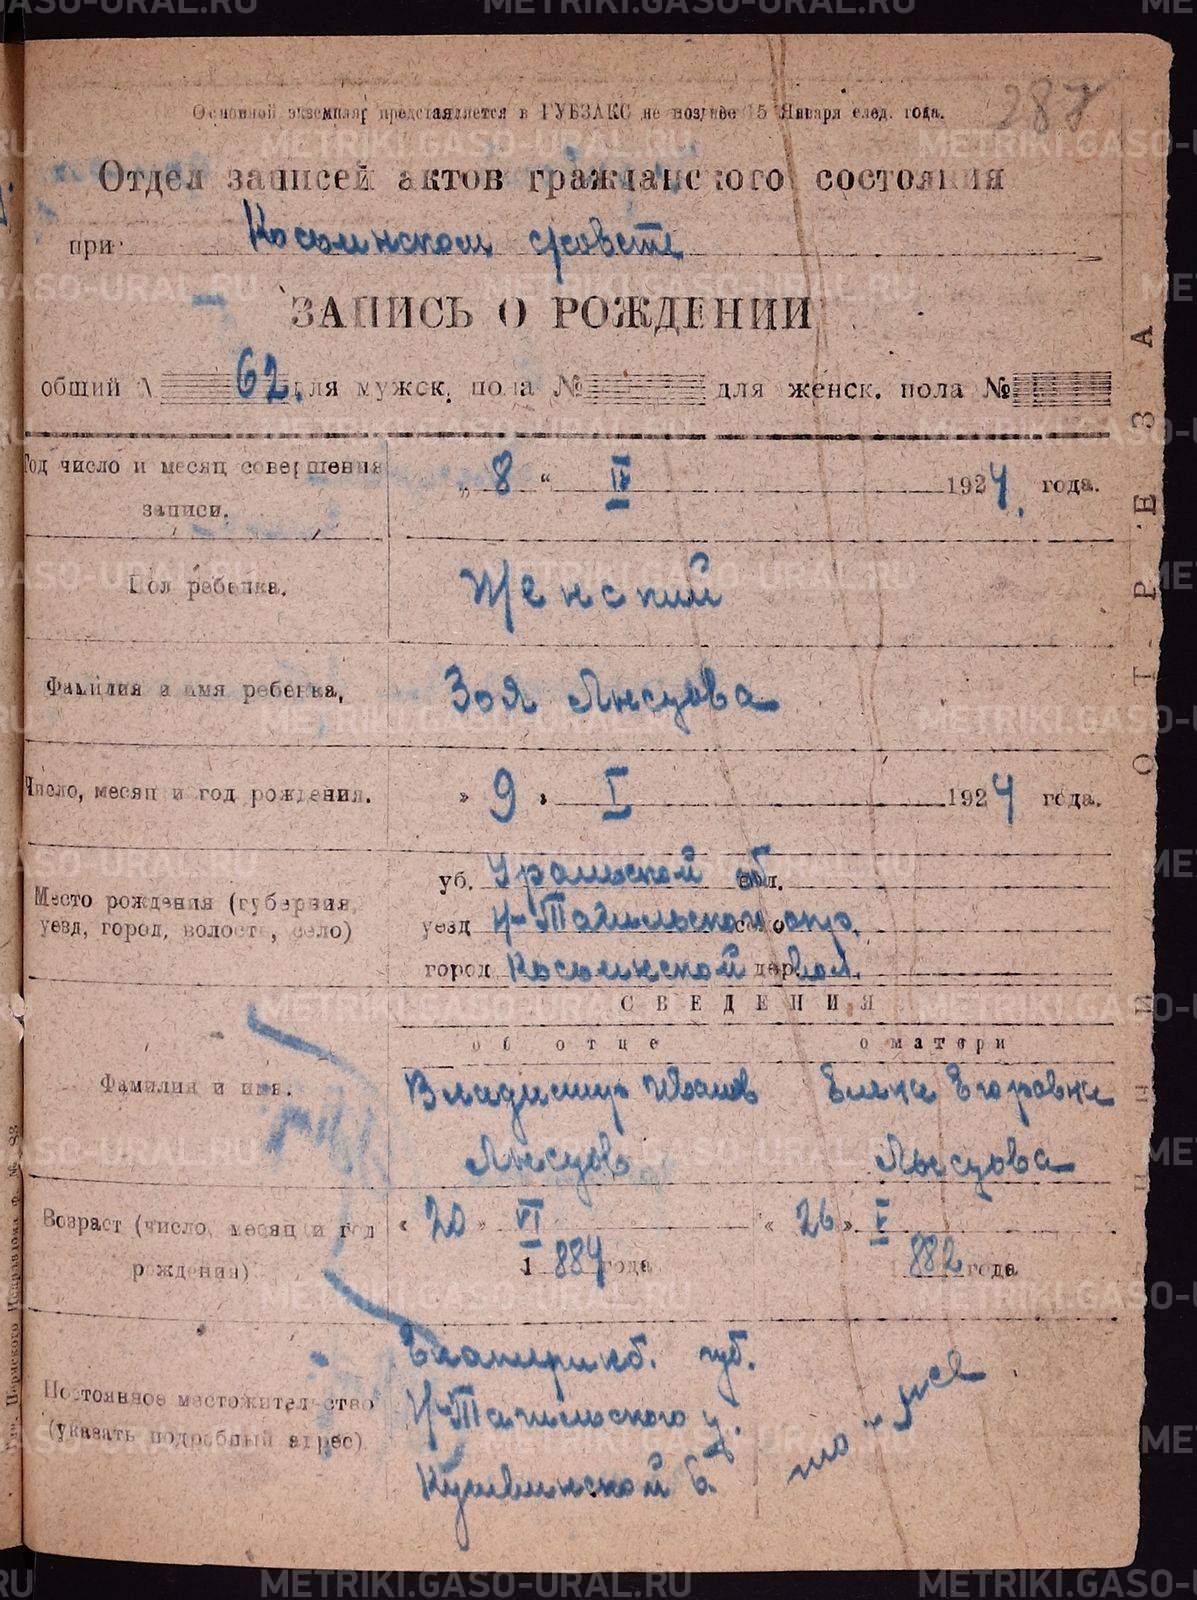 287
Основной экземпляр представляется в ГУБЗАКС не позднее 15 Января след. года.
Отдел записей актов гражданского состояния
при
ЗАПИСЬ О РОЖДЕНИИ
общий № 62. для мужск. пола № для женск. пола №
Год число и месяц совершения „ 8 “ IV 1924 года.
записи.
Пол ребенка. Женский
Фамилия и имя ребенка, Зоя Лысцова
Число, месяц и год рождения. » 9 » I 1924 года.
Место рождения (губерния, уб. Уральской об
уезд, город, волость, село) уезд Н-Тагильской окр.
город вол.
СВЕДЕНИЯ
об отце о матери
Фамилия и имя. Владимир Иванов Елена Егоровна
Лысцов Лысцова
Возраст (число, месяц и год « 20 » VI « 26 » V
рождения) 1884 года 882 года
Екатеринб. губ.
Постоянное местожительство Н-Тагильского у.
(указать подробный адрес) Кушвинской в.
то-же
ОТРЕЗА